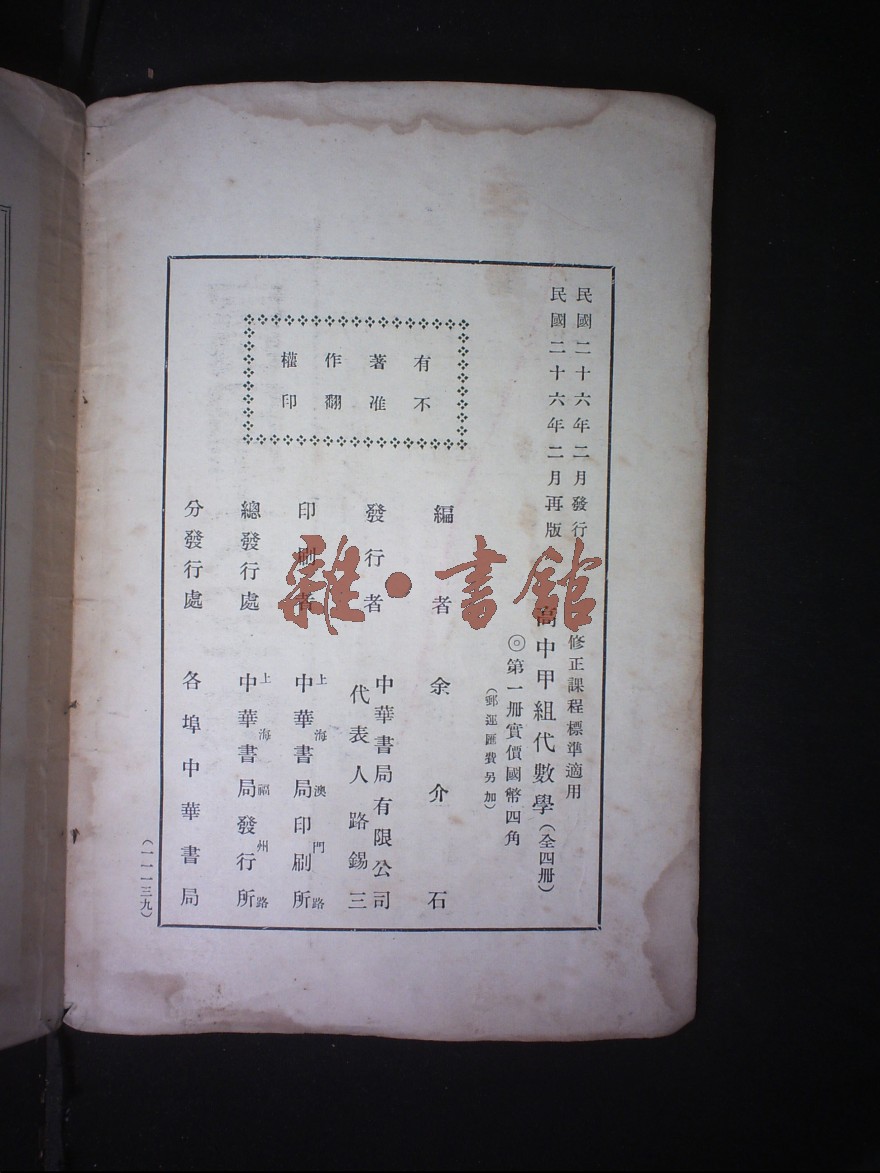 民國二十六年二月發行
民國二十六年二月再版
修正課程標準適用
高中甲組代數學（全四册）
◎第一册實價國幣四角
（郵運匯費另加）
有不
著准
作翻
權印
編者 余介石
發行者 中華書局有限公司
代表人路錫三
印刷者 上海澳門路
中華書局印刷所
總發行處 上海福州路
中華書局發行所
分發行處 各埠中華書局
（一一一三九）
雜·書館